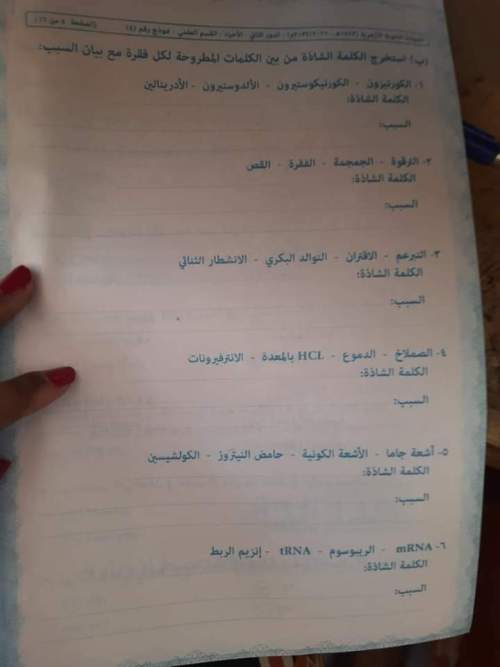 الثانوية الأزهرية - الدور الثاني - الأحياء - القسم العلمي - نموذج رقم (٤)
(ب) استخرج الكلمة الشاذة من بين الكلمات المطروحة لكل فقرة مع بيان السبب:
١- الكورتيزون - الكورتيكوستيرون - الألدوستيرون - الأدرينالين
الكلمة الشاذة:
السبب:
٢- الترقوة - الجمجمة - الفقرة - القص
الكلمة الشاذة:
السبب:
٣- التبرعم - الاقتران - التوالد البكري - الانشطار الثنائي
الكلمة الشاذة:
السبب:
٤- الصملاخ - الدموع - HCL بالمعدة - الانترفيرونات
الكلمة الشاذة:
السبب:
٥- أشعة جاما - الأشعة الكونية - حامض النيتروز - الكولشيسين
الكلمة الشاذة:
السبب:
٦- mRNA - الريبوسوم - tRNA - إنزيم الربط
الكلمة الشاذة:
السبب: